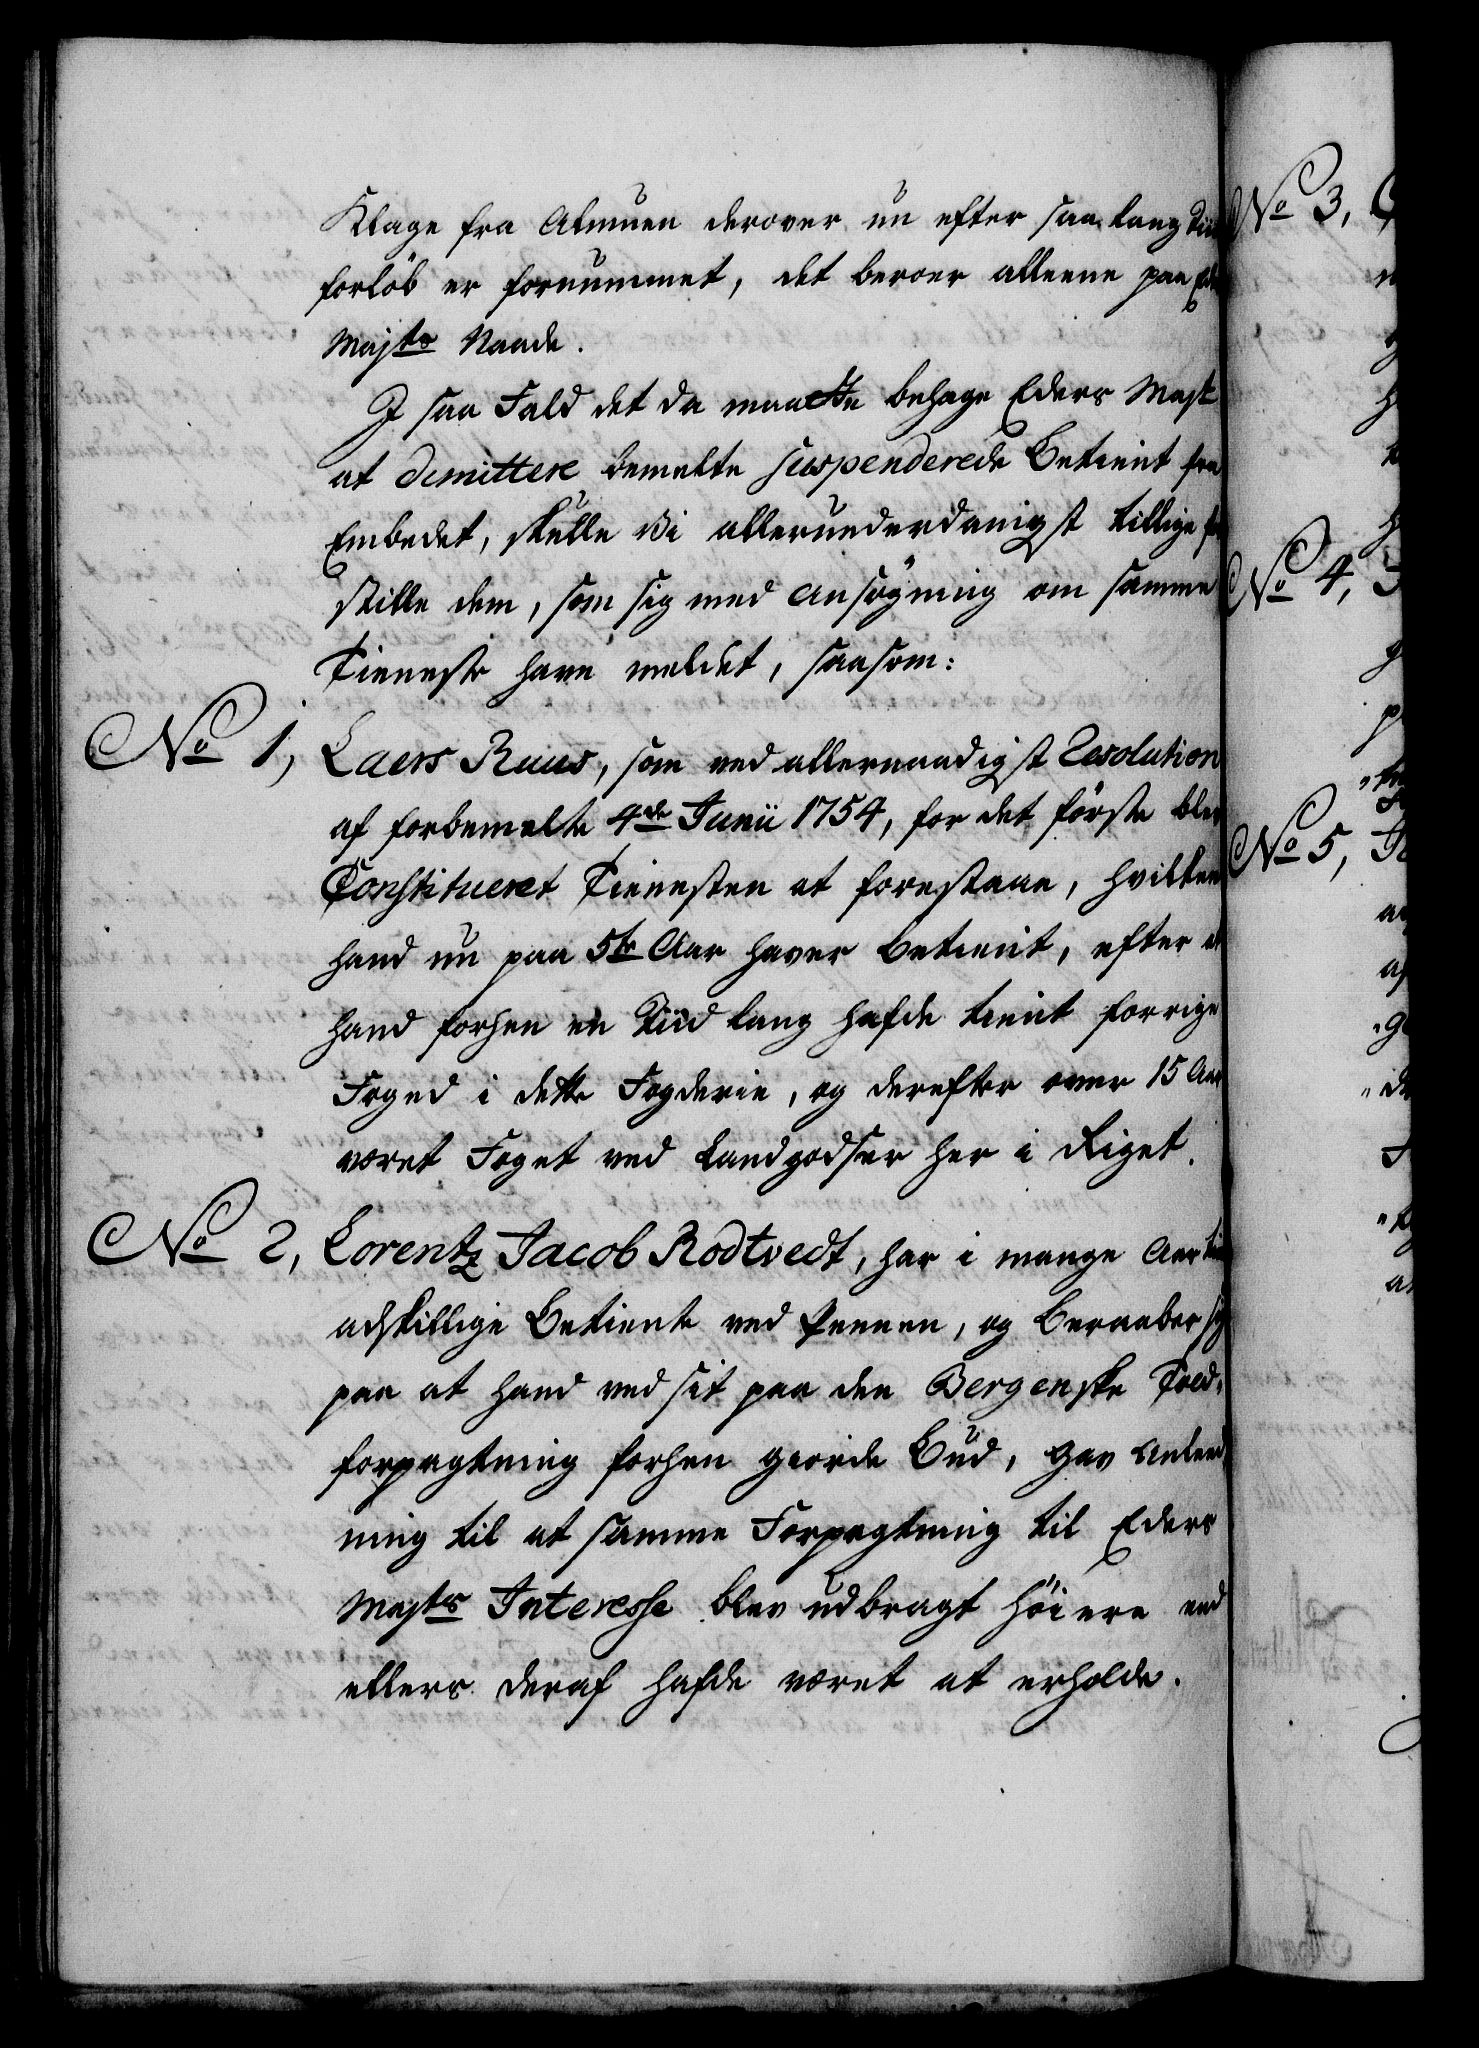 Klage fra Almuen derover nu efter saa lang Tiids
forløb er fornummet, det beroer alleene paa Eders
Majts Naade.
I saa Fald det da maatte behage Eders Majt
at dimittere bemelte suspenderede Betient fra
Embedet, skulle Vi allerunderdanigst tillige fore
stille dem, som sig med Ansøgning om samme
Tieneste have meldet, saasom:
No 1, Laers Ruus, som ved allernaadigst Resolution
af forbemelte 4de Junii 1754, for det første blev
Constitueret Tienesten at forestaae, hvilken
hand nu paa 5te Aar haver betient, efter at
hand forhen en Tiid lang hafde tient forrige
Foged i dette Fogderie, og derefter over 15 Aar
været Foget ved Landgodser her i Riget.
No 2, Lorentz Jacob Rodtvedt, har i mange Aar tient
adskillige Betiente ved Pennen, og beraaber sig
paa at hand ved sit paa den Bergenske Told-
forpagtning forhen giorde Bud, gav Anled
ning til at samme Forpagtning til Eders
Majts Interesse blev udbragt høiere end
ellers deraf hafde været at erholde.
No 3,
No 4,
No 5,